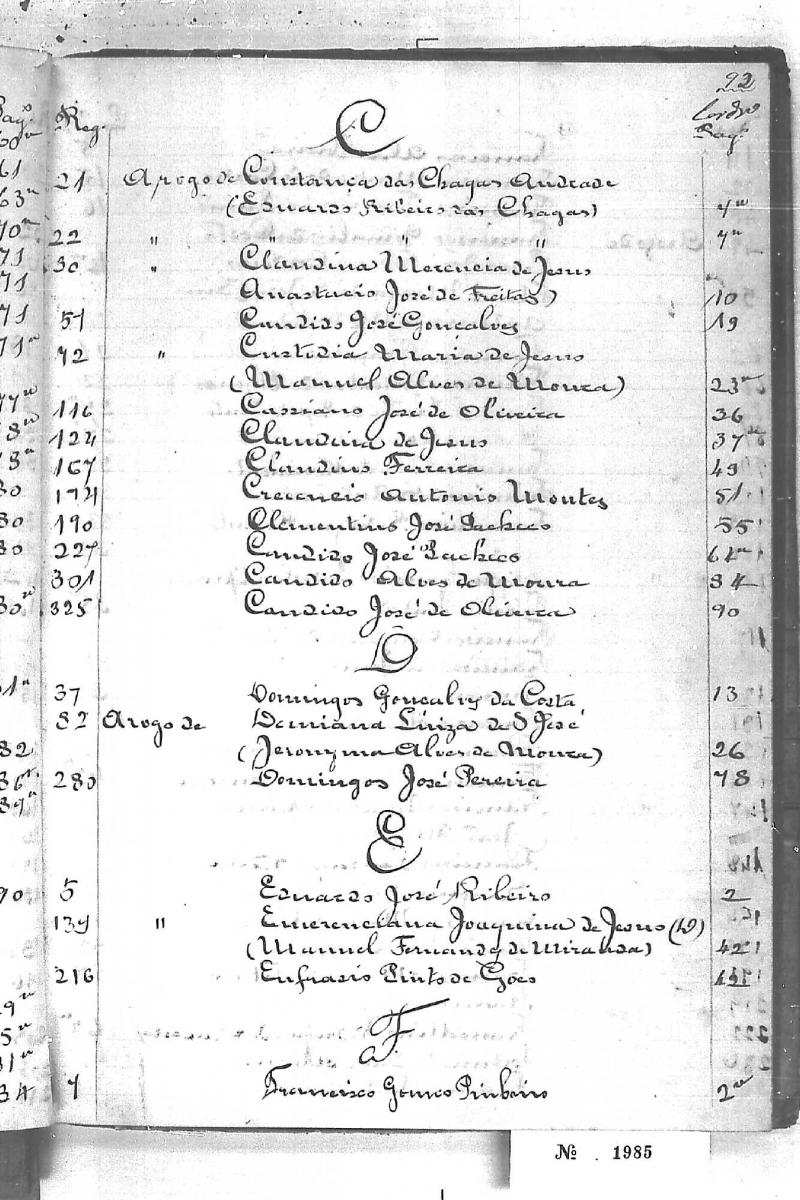 92
Reg. C Pag.
21 Arogo de Constança das Chagas Andrade
(Eduardo Ribeiro das Chagas) 7v
22 " " " " 7v
30 " Claudina Merencia de Jesus
Anastacio José de Freitas) 10
51 Candido José Gonçalves 19
72 " Custodia Maria de Jesus
(Manuel Alves de Moura) 23v
116 Cassiano José de Oliveira 36
124 Claudina de Jesus 37v
167 Claudino Ferreira 49
174 Crecencio Antonio Montes 51
190 Clementino José Pacheco 55
227 Candido José Pacheco 64v
301 Candido Alves de Moura 84
325 Candido José de Oliveira 90
D
37 Domingos Gonçalves da Costa 13
82 Arogo de Demiana Luiza de S José
(Jeronyma Alves de Moura) 26
280 Domingos José Pereira 78
E
5 Eduardo José Ribeiro 2
139 " Emerenciana Joaquina de Jesus (D)
(Manuel Fernandes de Miranda) 42
216 Enfrasio Pinto de Goes
F
7 Francisco Gomes Pinheiro 2v
Nº 1985